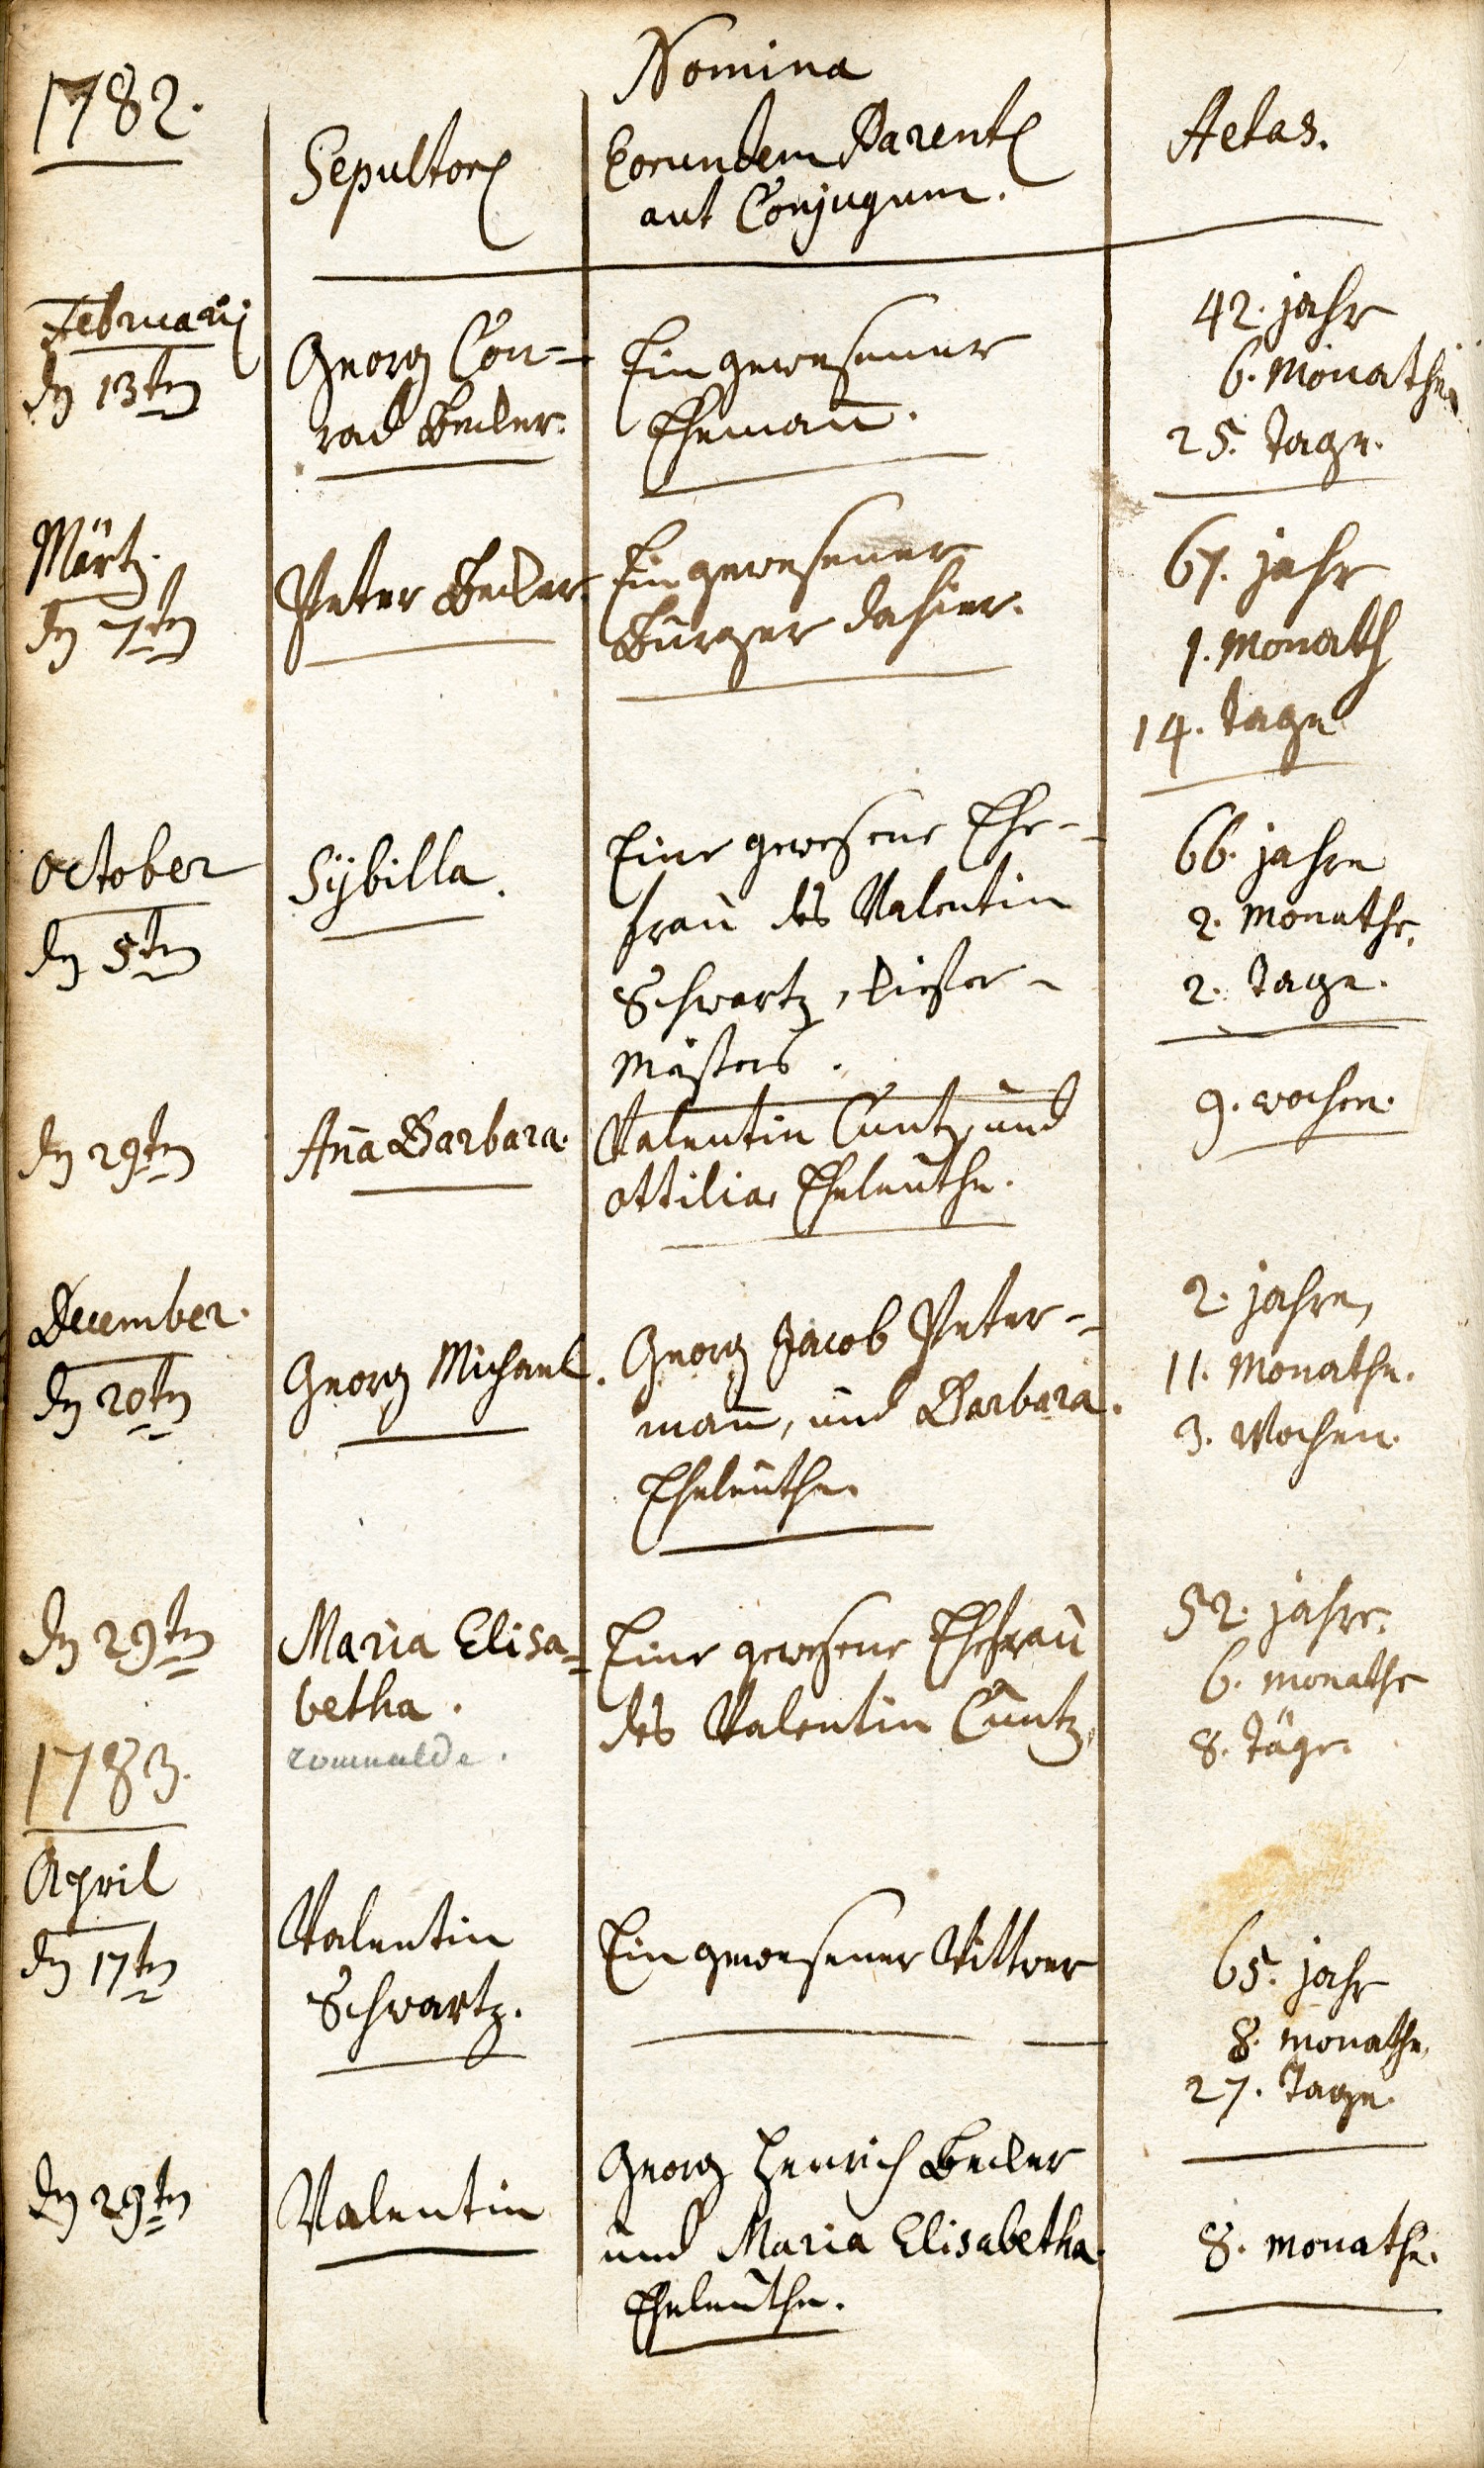 1782.
Nomina
Sepultor
Eorundem Parent
aut Conjugum.
Aetas.
Februarij
dn 13tn
Georg Con=
rad Becker.
Ein gewesener
Ehemañ.
42. jahr
6. Monathe
25. Tage.
Märtz.
dn 7tn
Peter Becker.
Ein gewesener
Burger dahier.
67. jahr
1. Monath
14. Tage
October
dn 5tn
Sÿbilla.
Eine gewesene Ehe=
frau des Valentin
Schwartz, Kiefer=
Meisters.
66. jahre
2. Monathe.
2. Tage.
dn 29tn
Aña Barbara.
Valentin Cuntz, und
Ottilia Eheleuthe.
9. wochen.
December.
dn 20tn
Georg Michael.
Georg Jacob Peter=
mañ, und Barbara.
Eheleuthe.
2. jahre,
11. Monathe.
3. Wochen.
dn 29tn
Maria Elisa=
betha.
Eine gewesene Ehefrau
des Valentin Cuntz,
52. jahre.
6. monathe
8. Täge.
1783.
April
dn 17tn
Valentin
Schwartz.
Ein gewesener Wittwer
65. jahr
8. monathe,
27. Tage.
dn 29tn
Valentin
Georg Henrich Becker
und Maria Elisabetha.
Eheleuthe.
8. monathe.